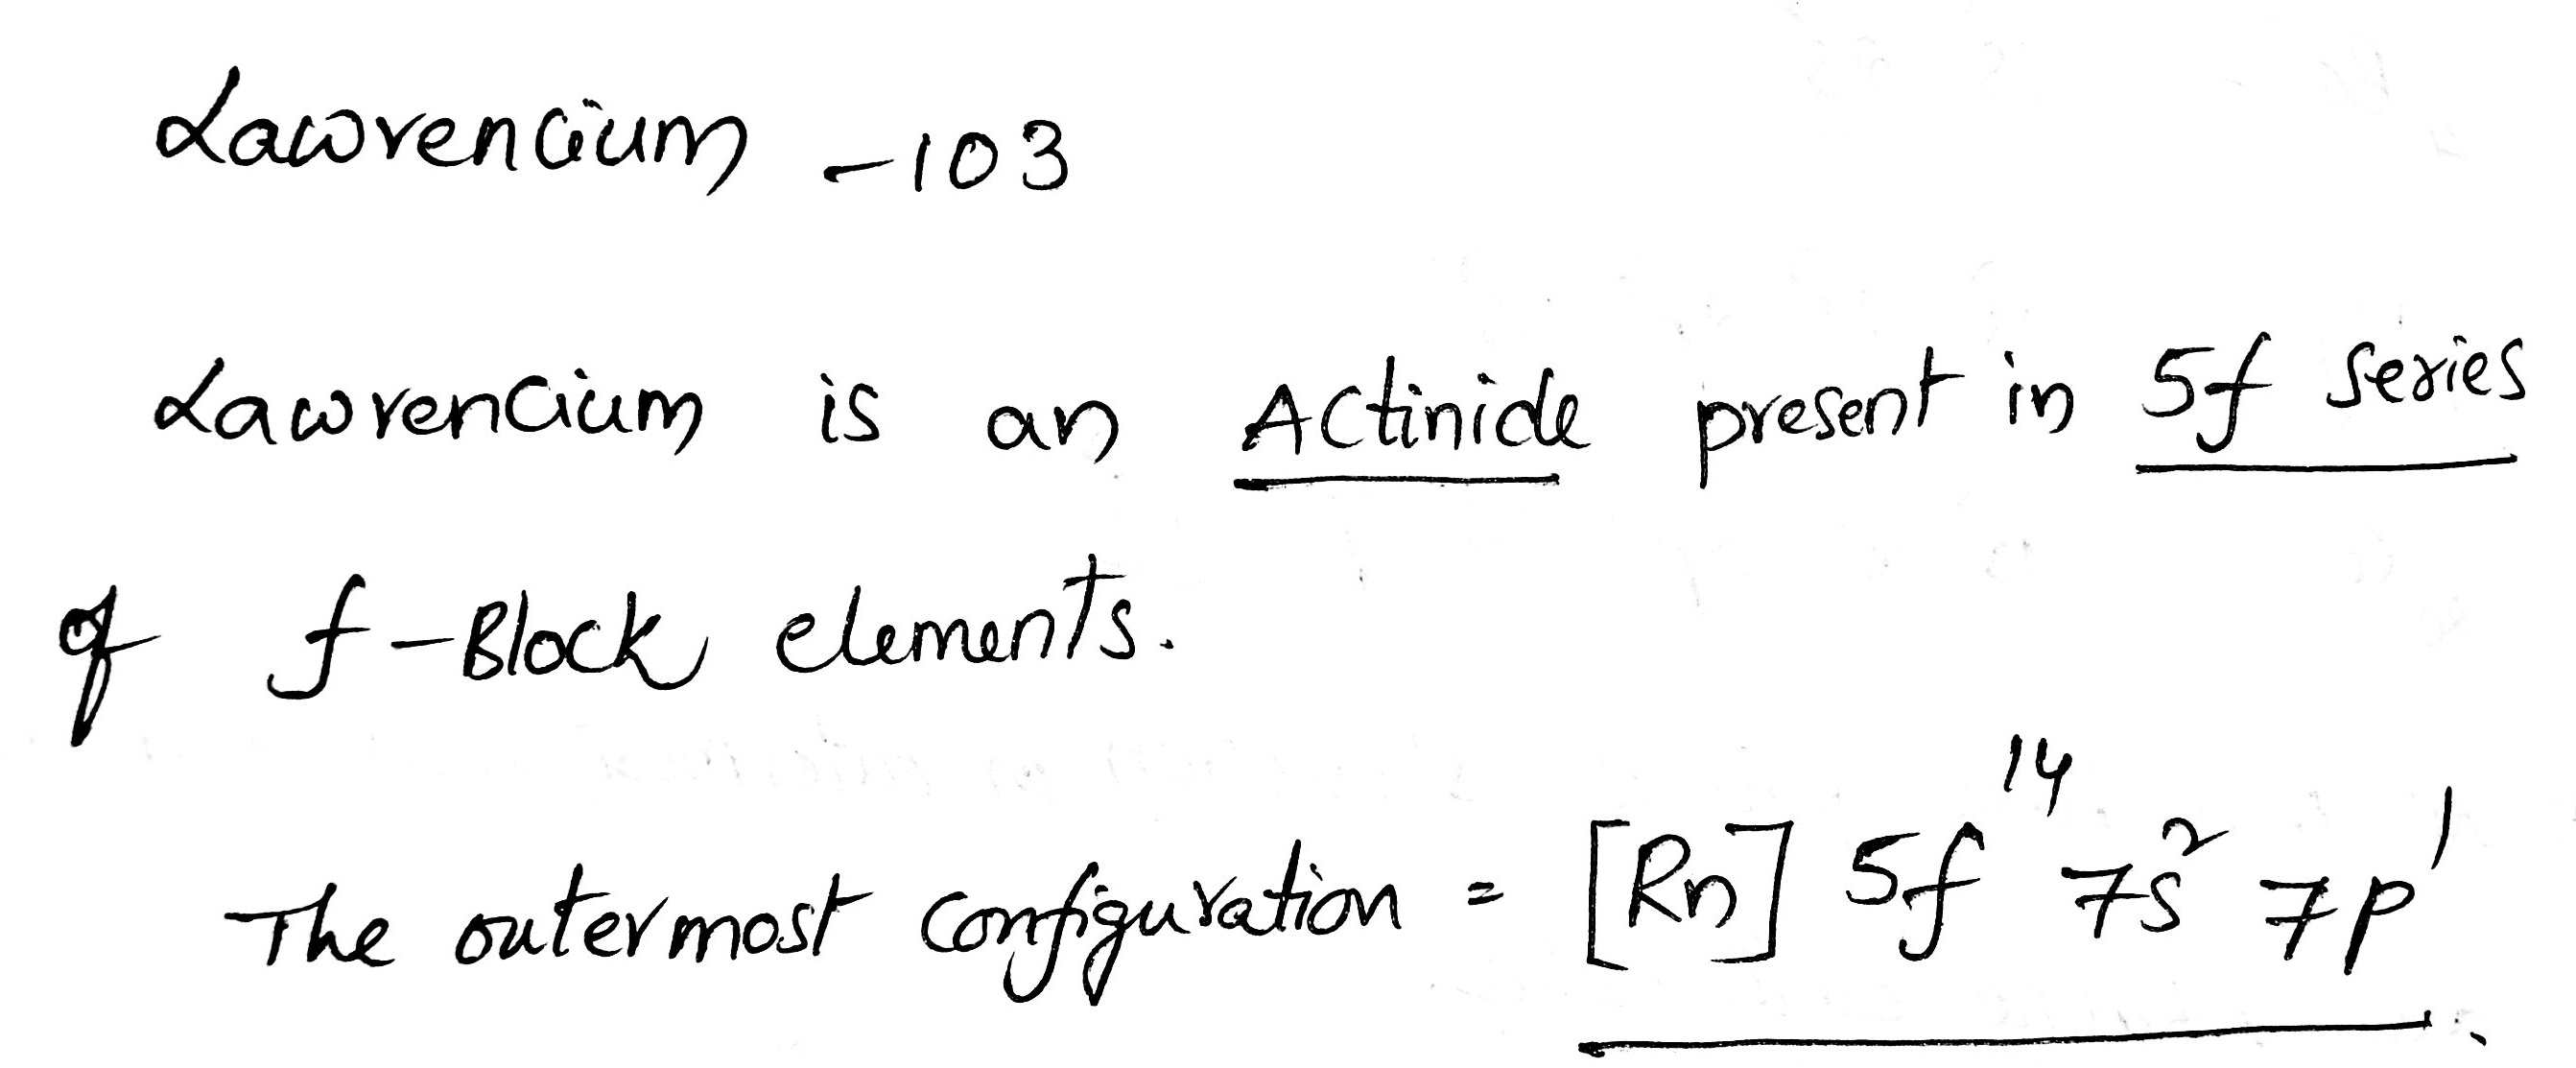 Lawrencium - 103
Lawrencium is an Actinide present in 5f series
of f-Block elements.
The outermost configuration = [Rn] 5f¹⁴ 7s² 7p¹.